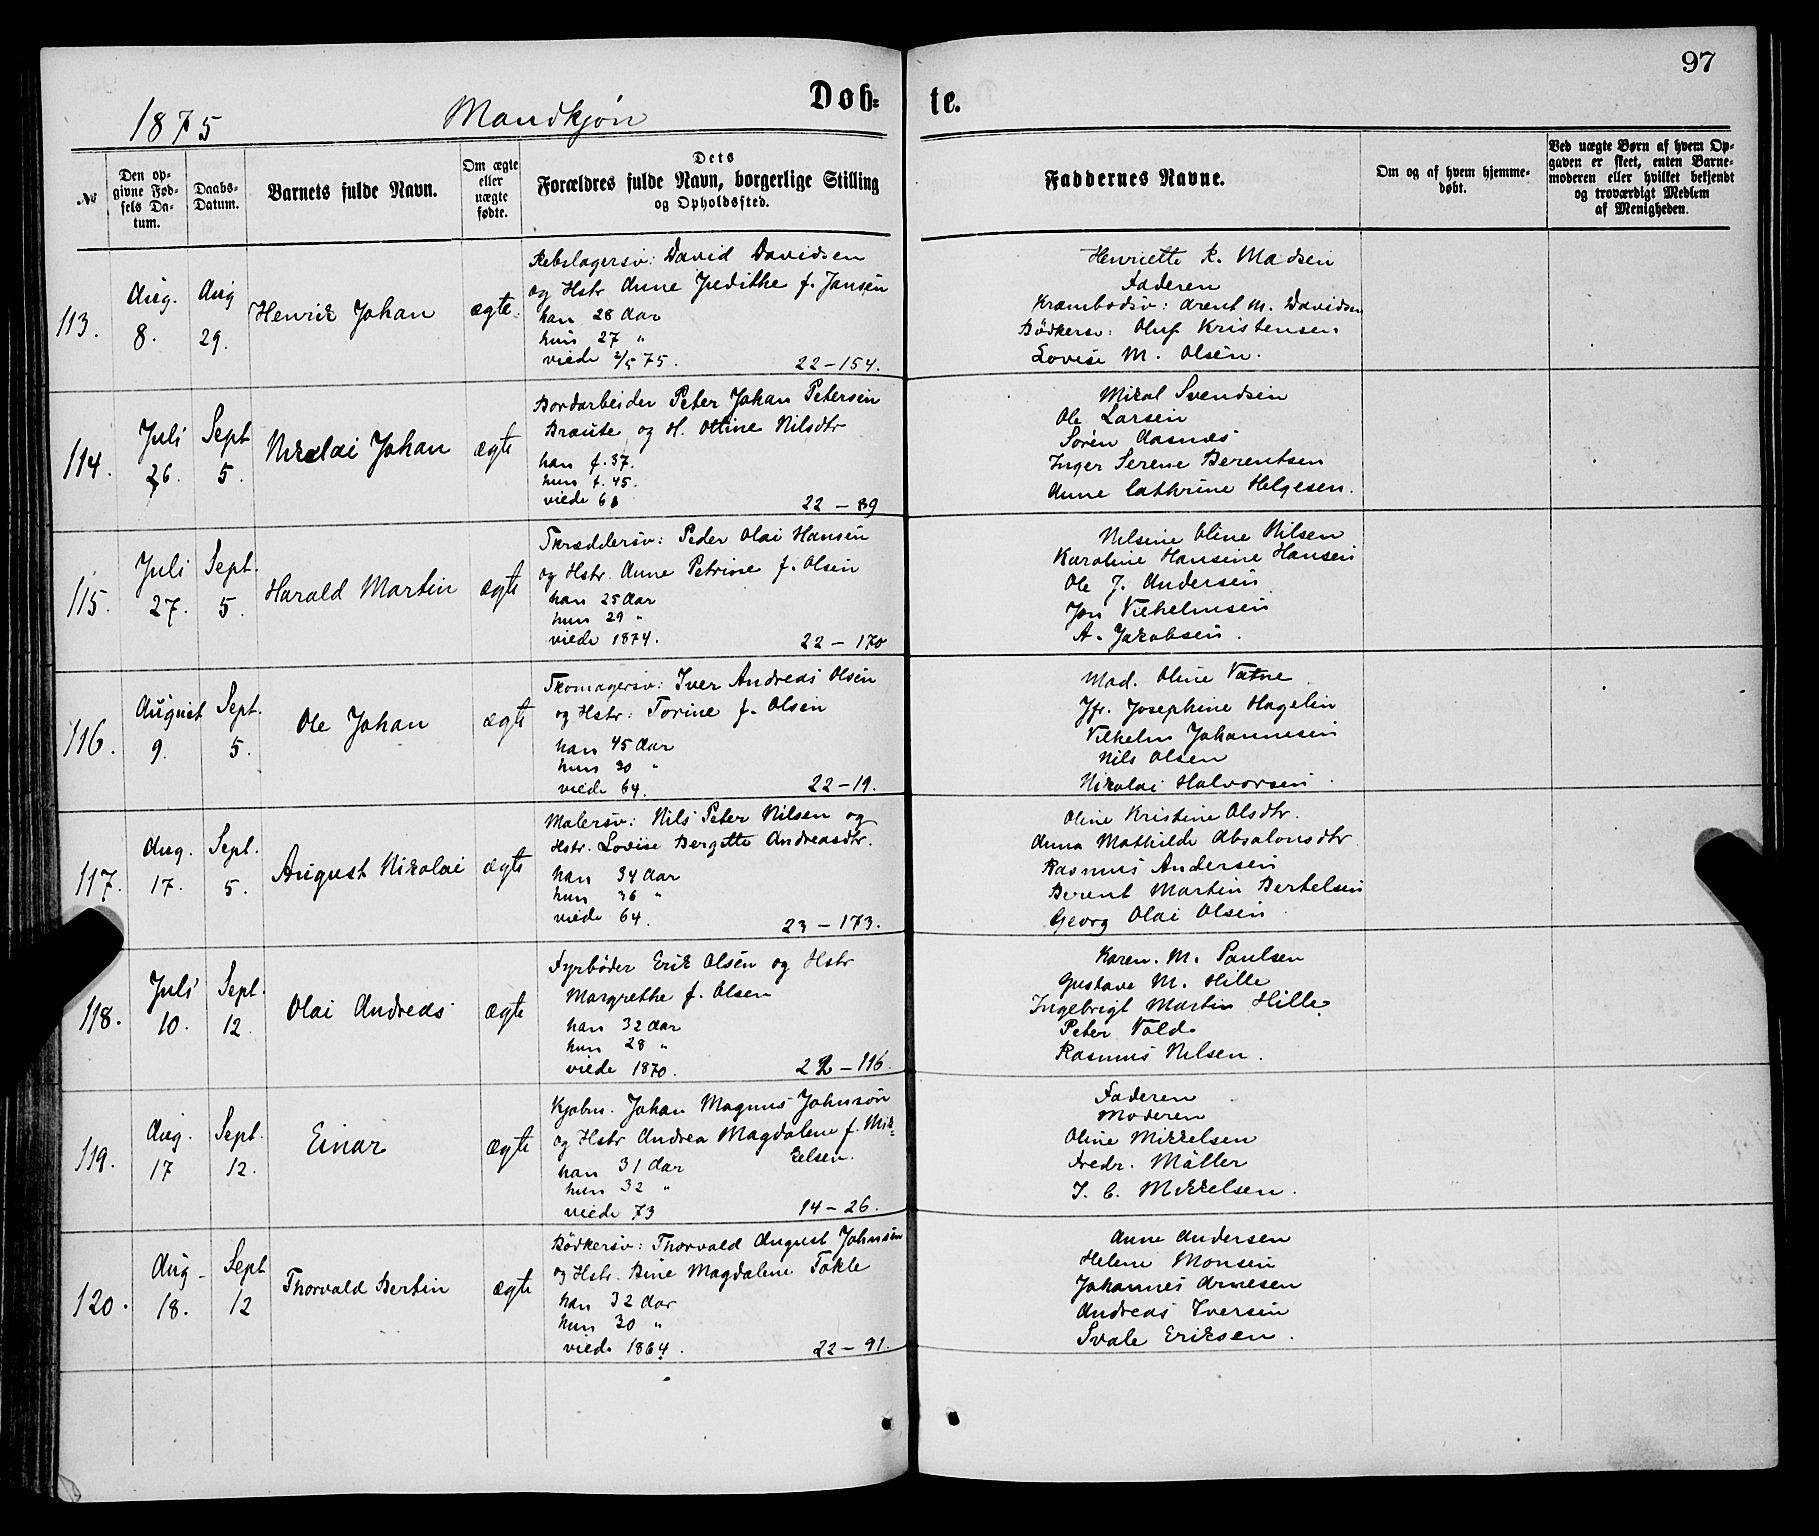 97
Døb-
te.
1875
Mandkjøn
No
Den op-
givne Fød-
sels Da-
tum.
Daabs-
Datum.
Barnets fulde Navn.
Om ægte
eller
uægte
fødte.
Dets
Forældres fulde Navn, borgerlige Stilling
og Opholdssted.
Faddernes Navne.
Om og af hvem hjemme-
døbt.
Ved uægte Børn af hvem Op-
gaven er skeet, enten Barne-
moderen eller hvilket bekjendt
og troværdigt Medlem
af Menigheden.
113.
Aug.
8.
Aug
29.
Henrik Johan
ægte.
Rebslagersv: David Davidsen
og Hstr Anne Jredithe f. Jansen
han 28 Aar
hun 27 "
viede 2/5 75.
22-154.
Henriette K. Madsen
Faderen
Krambodsv: Arent M. Davidsen
Bödkersv: Oluf Kristensen
Lovise M. Olsen.
114.
Juli
26.
Sept
5.
Nicolai Johan
ægte
Bordarbeider Peter Johan Petersen
Braute og H. Olline Nilsdtr
han f. 37.
hun f. 45.
viede 68
22-89
Mikal Svendsen
Ole Larsen
Sören Aasnæs
Inger Serene Berentsen
Anne Cathrine Helgesen.
115.
Juli
27.
Sept.
5.
Harald Martin
ægte
Skræddersv: Peder Olai Hansen
og Hstr. Anne Petrine f. Olsen
han 25 Aar
hun 29 "
viede 1874.
22-170
Nilsine Oline Nilsen
Karoline Hansine Hansen
Ole J. Andersen
Jon Vilhelmsen
A. Jakobsen.
116.
August
9.
Sept.
5.
Ole Johan
ægte
Skomagersv: Iver Andreas Olsen
og Hstr: Torine f. Olsen
han 45 Aar
hun 30 "
viede 64.
22-19.
Mad. Oline Vatne
Jfr. Josephine Hagelin
Vilhelm Johannesen
Nils Olsen
Nikolai Halvorsen
117.
Aug.
17.
Sept.
5.
August Nikolai
ægte
Malersv: Nils Peter Nilsen og
Hstr. Lovise Bergitte Andreasdtr.
han 34 Aar
hun 36 "
viede 64.
23-173.
Oline Kristine Olsdtr.
Anna Mathilde Absalonsdtr
Rasmus Andersen
Berent Martin Bertelsen
Georg Olai Olsen
118.
Juli
10.
Sept.
12.
Olai Andreas
ægte
Fyrböder Erik Olsen og Hstr
Margrethe f. Olsen
han 32 Aar
hun 28 "
viede 1870.
22-116.
Karen. M. Paulsen
Gustave M. Hille
Ingebrigt Martin Hille
Peter Vold
Rasmus Nilsen.
119.
Aug.
17
Sept.
12.
Einar
ægte
Kjøbm. Johan Magnus Johnson
og Hstr Andrea Magdalene f. Mik-
kelsen.
han 31 Aar
hun 32 "
viede 73
14-26.
Faderen
Moderen
Oline Mikkelsen
Fredr. Möller
J. C. Mikkelsen.
120.
Aug.
18.
Sept
12
Thorvald Bertin
ægte
Bödkersv: Thorvald August Johnsen
og Hstr. Bine Magdalene Tokle
han 32 Aar
hun 30 "
viede 1864.
22-91.
Anne Andersen
Helene Monsen
Johannes Arnesen
Andreas Iversen
Svale Eriksen.